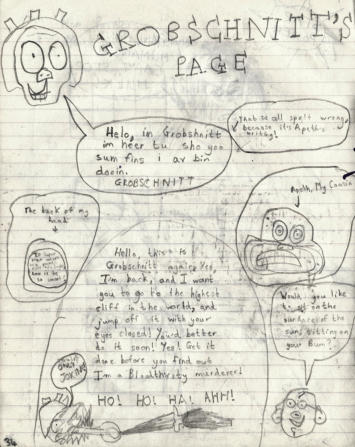 GROBSCHNITT'S
PAGE
Helo, im Grobshnitt
im heer tu sho yoo
sum fins i av bin
dooin.
GROBSCHNITT
That se all spelt wrong,
because it's Apeth's
writing!
The back of my
head
Apeth, My Cousin
Hello, this is
Grobschnitt again, Yes,
I'm back, and I want
you to go to the highest
cliff in the world, and
jump off it with your
eyes closed! You'd better
do it soon! Yes! Get it
done before you find out
I'm a Bloodthirsty murderer!
HO! HO! HA! AHH!
Would you like
to sit on the
surface of the
sun, sitting on
your Bum?
ONLY
JOKING
34